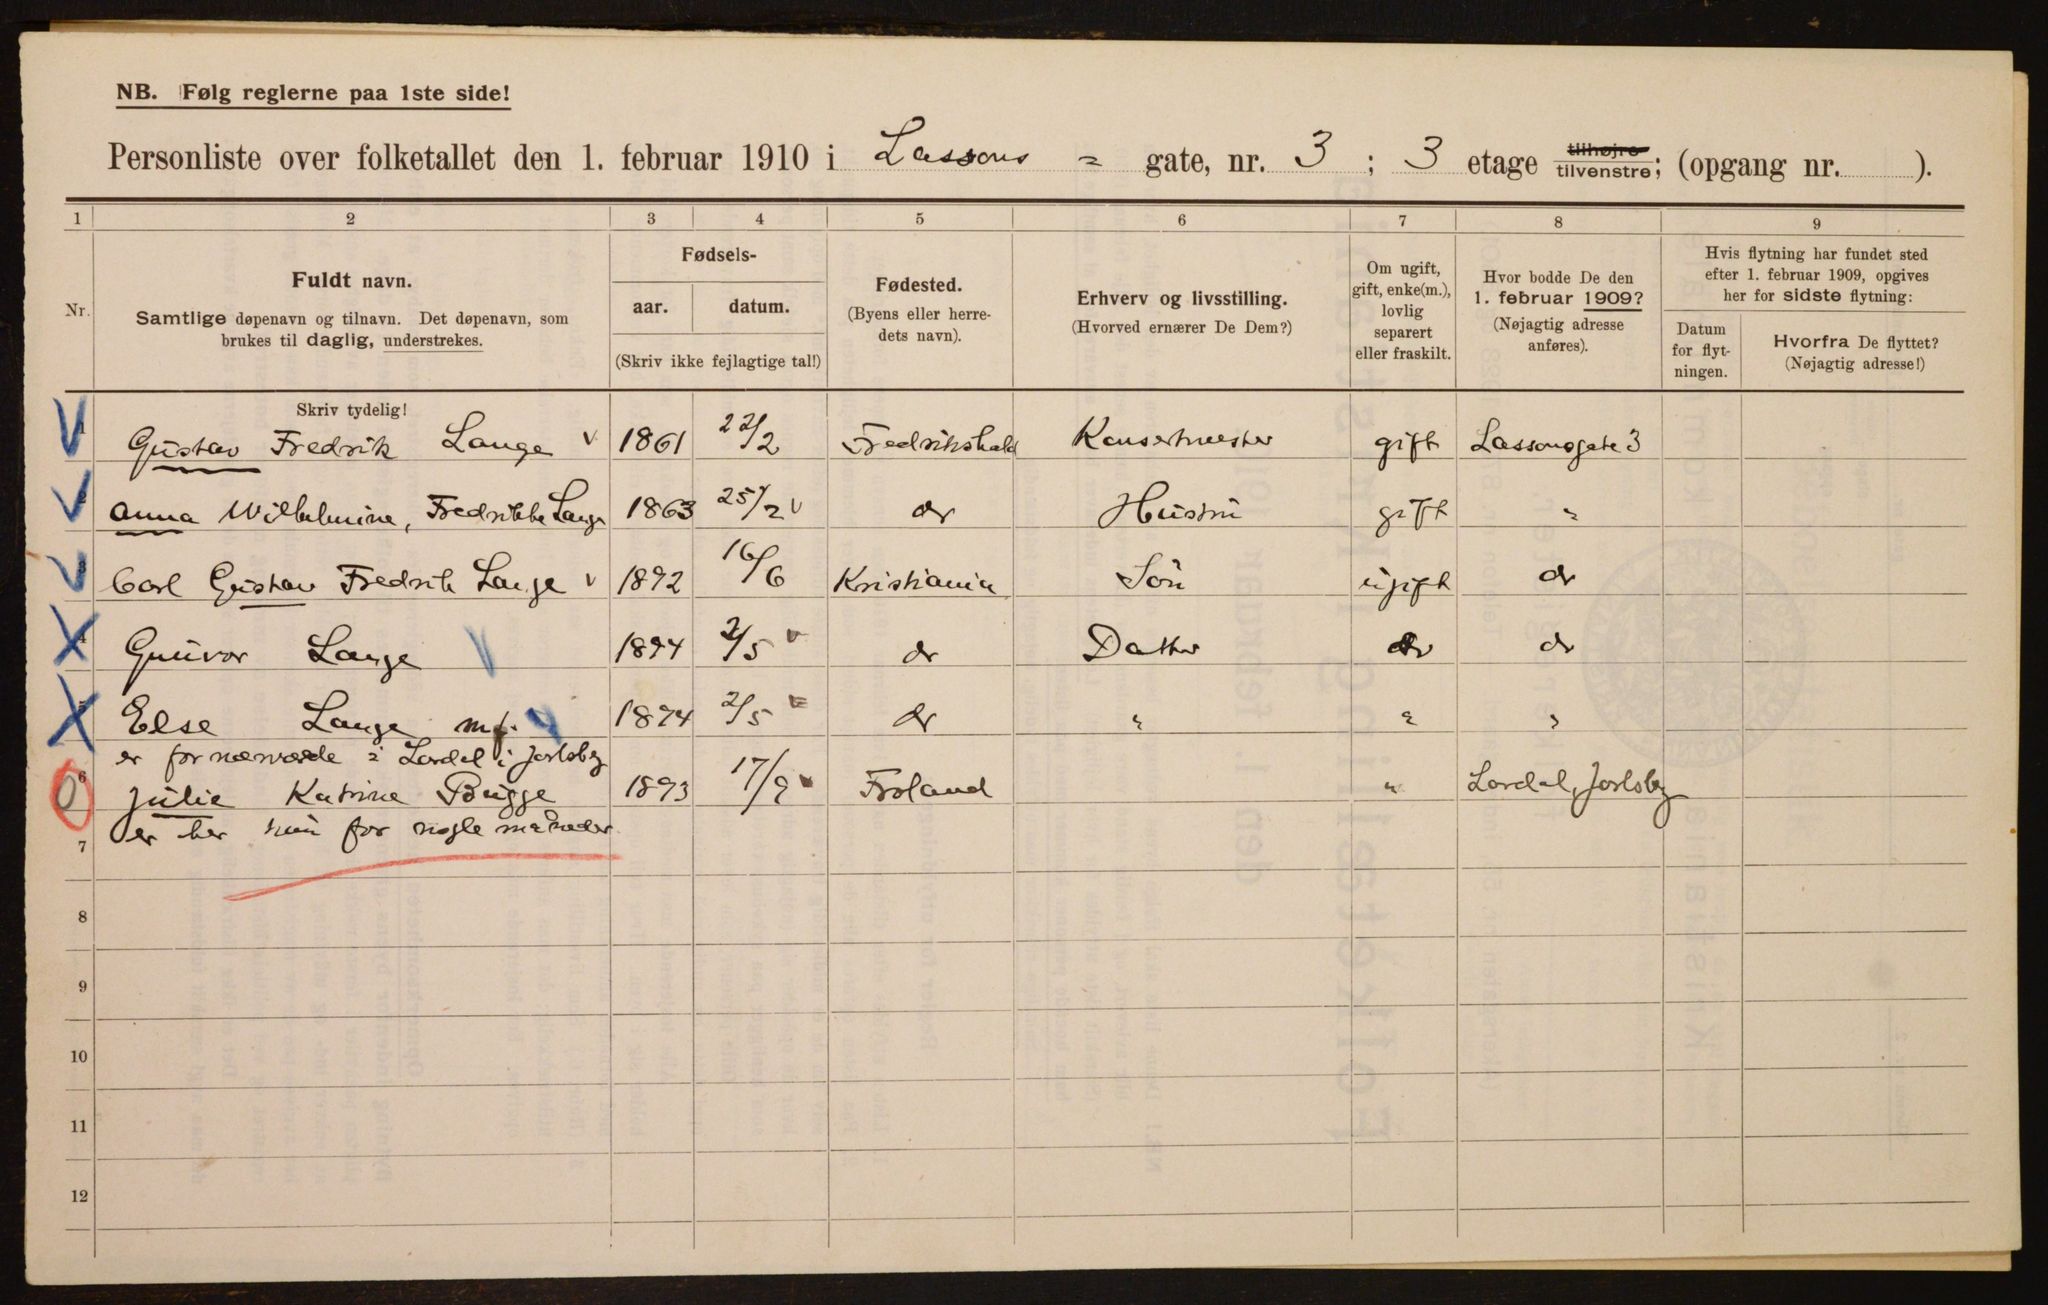 NB. Følg reglerne paa 1ste side!
Personliste over folketallet den 1. februar 1910 i Lassons = gate, nr. 3 ; 3 etage tilhøjre tilvenstre; (opgang nr. ).
1 2 3 4 5 6 7 8 9
Nr.
Fuldt navn.
Samtlige døpenavn og tilnavn. Det døpenavn, som
brukes til daglig, understrekes.
Fødsels-
aar. datum.
(Skriv ikke fejlagtige tal!)
Fødested.
(Byens eller herre-
dets navn).
Erhverv og livsstilling.
(Hvorved ernærer De Dem?)
Om ugift,
gift, enke(m.),
lovlig
separert
eller fraskilt.
Hvor bodde De den
1. februar 1909?
(Nøjagtig adresse
anføres).
Hvis flytning har fundet sted
efter 1. februar 1909, opgives
her for sidste flytning:
Datum
for flyt-
ningen.
Hvorfra De flyttet?
(Nøjagtig adresse!)
Skriv tydelig!
1 Gustav Fredrik Lange 1861 22/2 Fredrikshald Konsertmester gift Lassonsgate 3
2 Anna Wilhelmine, Fredrikke Lange 1863 25/2 do Hustru gift "
3 Carl Gustav Fredrik Lange 1892 16/6 Kristiania Sön ugift do
4 Gunvor Lange 1894 2/5 do Datter do do
5 Else Lange mf. 1894 2/5 do " " "
er for nærværde i Lardal i Jarlsbg
6 Julie Katrine Bugge 1893 17/9 Froland " Lardal, Jarlsbg
er her kun for nogle måneder
7
8
9
10
11
12